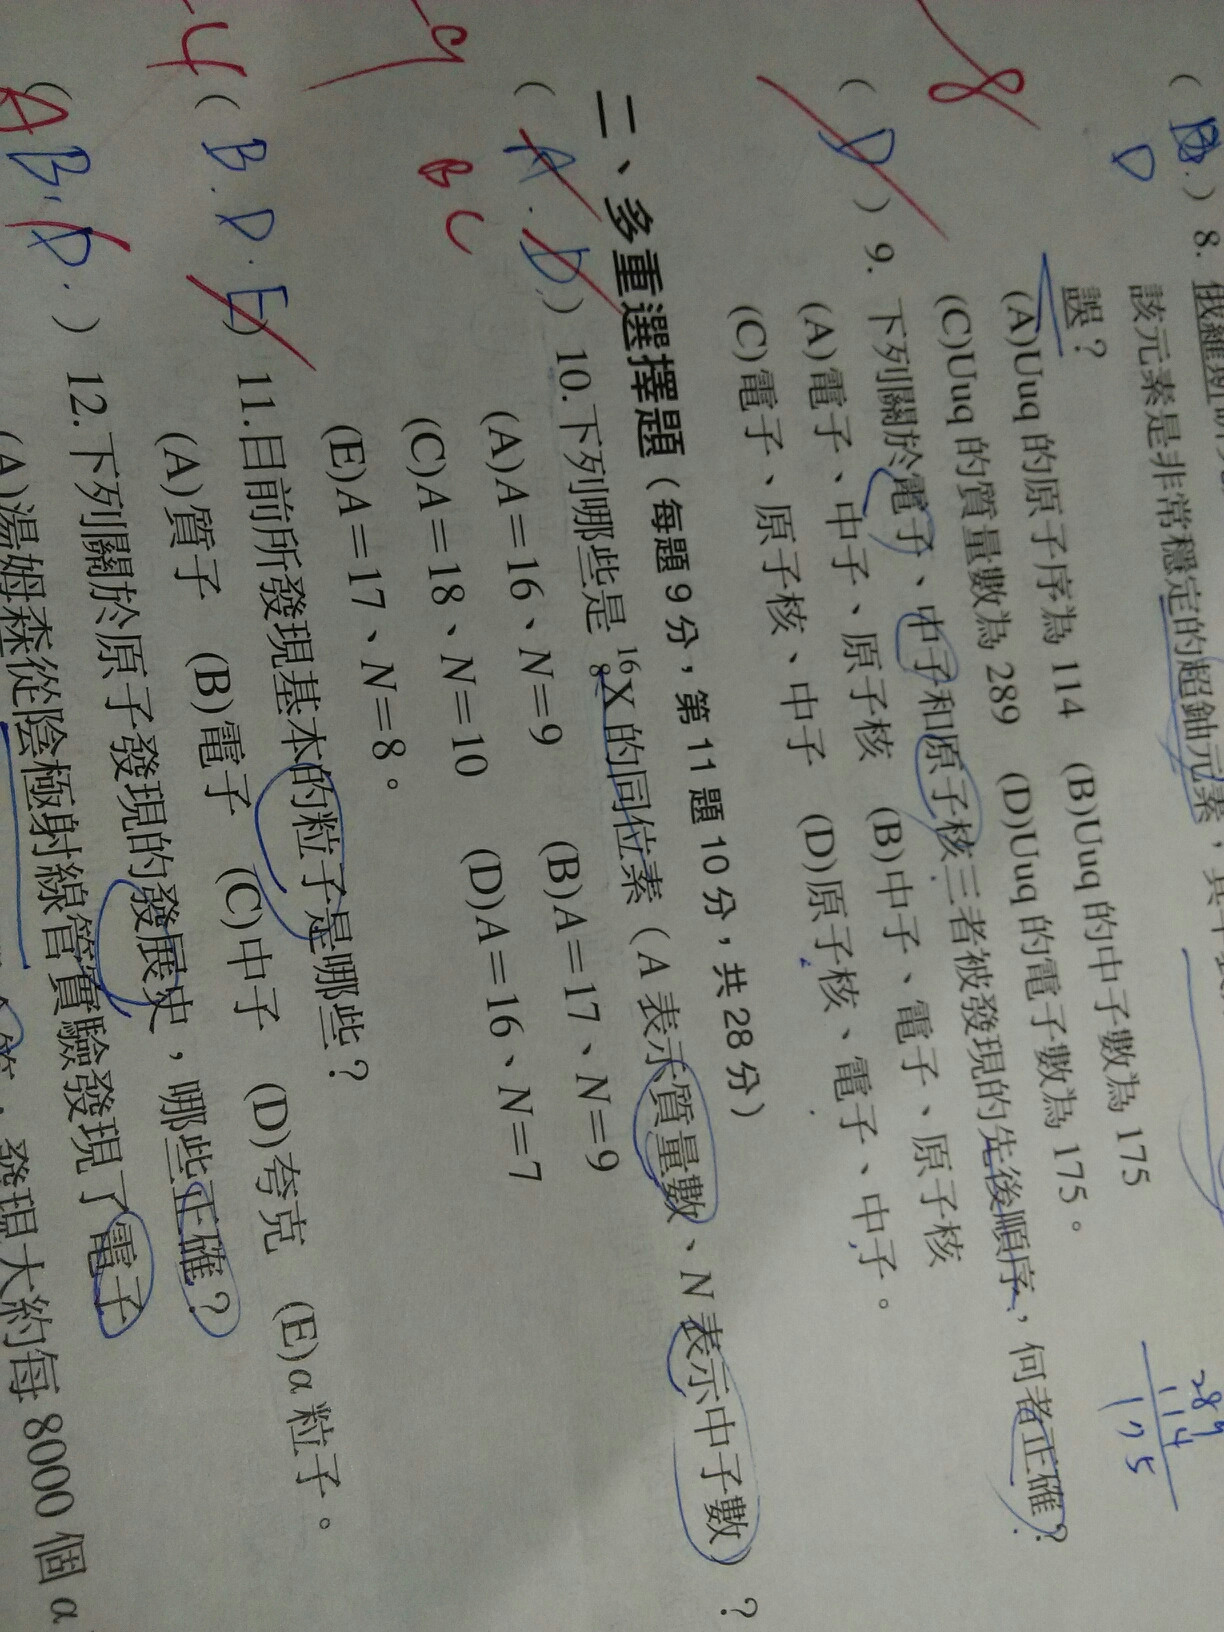 8. 俄羅斯
該元素是非常穩定的超鈾元素，其中
誤？
(A)Uuq 的原子序為 114 (B)Uuq 的中子數為 175
(C)Uuq 的質量數為 289 (D)Uuq 的電子數為 175。
D
289
114
175
8
( D ) 9. 下列關於電子、中子和原子核三者被發現的先後順序，何者正確？
(A)電子、中子、原子核 (B)中子、電子、原子核
(C)電子、原子核、中子 (D)原子核、電子、中子。
二、多重選擇題（每題 9 分，第 11 題 10 分，共 28 分）
( A . D. ) 10.下列哪些是 ¹⁶₈X 的同位素（A 表示質量數、N 表示中子數）？
B C
-9
(A)A＝16、N＝9 (B)A＝17、N＝9
(C)A＝18、N＝10 (D)A＝16、N＝7
(E)A＝17、N＝8。
( B . D . E ) 11.目前所發現基本的粒子是哪些？
-4
(A)質子 (B)電子 (C)中子 (D)夸克 (E)α 粒子。
( A B. D. ) 12.下列關於原子發現的發展史，哪些正確？
(A)湯姆森從陰極射線管實驗發現了電子
發現大約每 8000 個 α